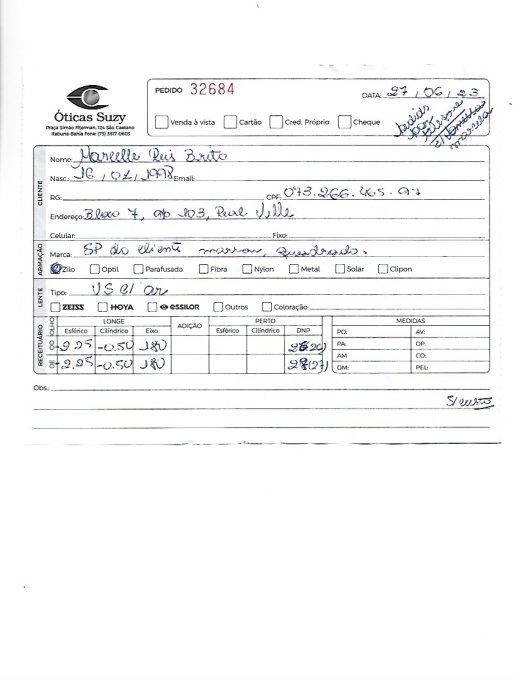 Óticas Suzy
Praça Simão Fiterman, 124 São Caetano
Itabuna-Bahia Fone: (73) 3617-0603
PEDIDO 32684
DATA: 27 / 06 / 23
Venda à vista Cartão Cred. Próprio Cheque
pedido por telefone
c/ marcela
CLIENTE
Nome: Marcelle Reis Brito
Nasc.: 16 / 01 / 1998 Email:
RG: CPF: 073.266.465.97
Endereço: Bloco 7, ap 103, Real Ville
Celular: Fixo:
ARMAÇÃO
Marca: SP do cliente marrom, quadrado.
Zilo Optil Parafusada Fibra Nylon Metal Solar Clipon
LENTE
Tipo: VS c/ ar
ZEISS HOYA essilor Outros Coloração:
RECEITUÁRIO
OLHO LONGE ADIÇÃO PERTO MEDIDAS
Esférico Cilíndrico Eixo Esférico Cilíndrico DNP
OD -2.25 -0.50 180
OE -2.25 -0.50 180 (27)
PO: AV:
PA: DP:
AM CO:
DM: PEL:
Obs.:
S/ custo